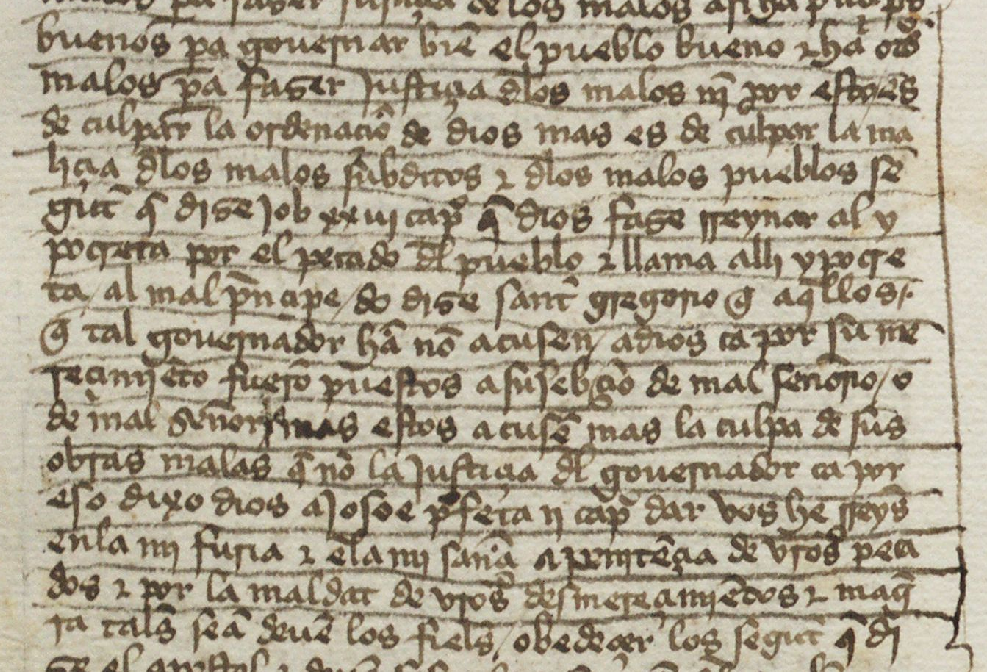 pa faser justiçia de los malos asi ha
buenos pa gouernar biē el pueblo bueno ⁊ ha otͦs
malos pa faser Justiçia dlos malos nī por esto es
de culpar la ordenaciō de dios mas es de culpar la ma
liçia dlos malos subditos ⁊ dlos malos pueblos se
gūt q̄ dise Job xxxiiii cap̄ q̄ dios fase rreynar al y
pocreta por el pecado dl pueblo ⁊ llama alli ypocre
ta / al mal prīncipe / do dise sant gregorio q̄ aqllos /
q̄ tal gouernador hā nō acusen / adios ca por su me
reçimiēto fuerō puestos a subiebçiō de mal señorio / o
de mal señor / mas estos acusē mas la culpa de sus
obras malas q̄ nō la Justiçia dl gouernador ca por
eso dixo dios a Josoe pfeta ii cap̄ dar vos he rreys
en la mi furia ⁊ en la mi saña a penitēçia de vros peca
dos ⁊ por la maldat de vros desmereçimiēntos ⁊ maq̄
ra tals seā deuē los fiels / obedeçer los segūt q̄ di